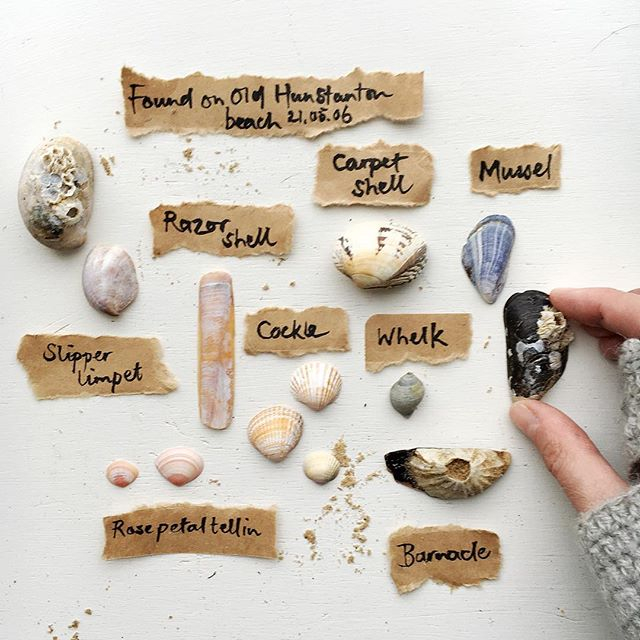 Found on Old Hunstanton
beach 21.05.06
Carpet
shell
Mussel
Razor
shell
Cockle
Whelk
Slipper
limpet
Rose petal tellin
Barnacle